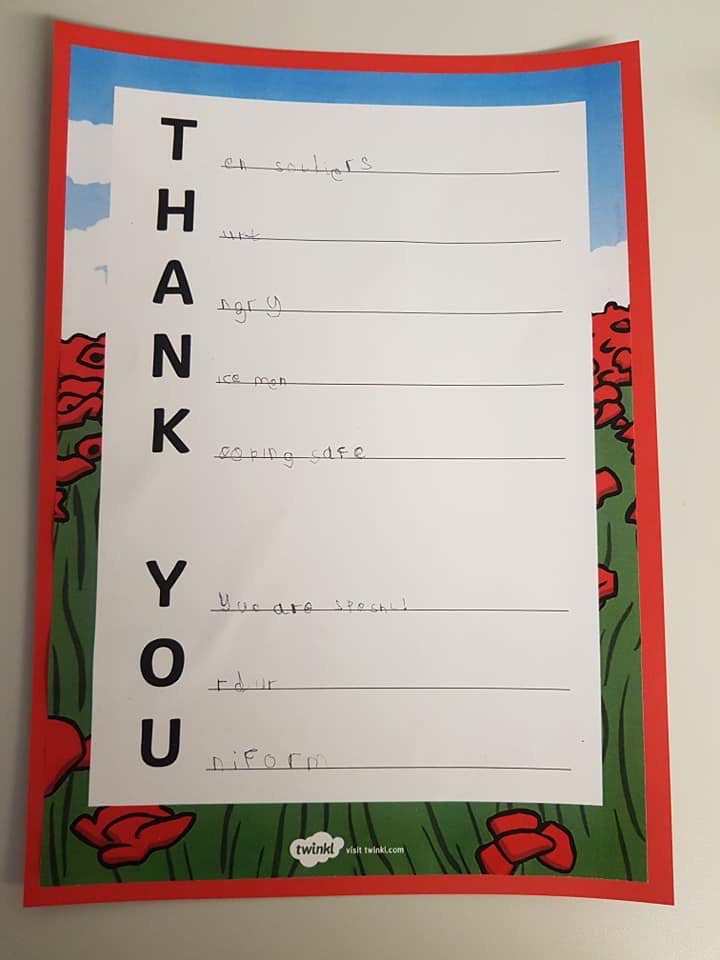 T en souljers
H urt
A ngry
N ice men
K eeping safe
Y you are speshl!
O rdur
U niform
twinkl visit twinkl.com